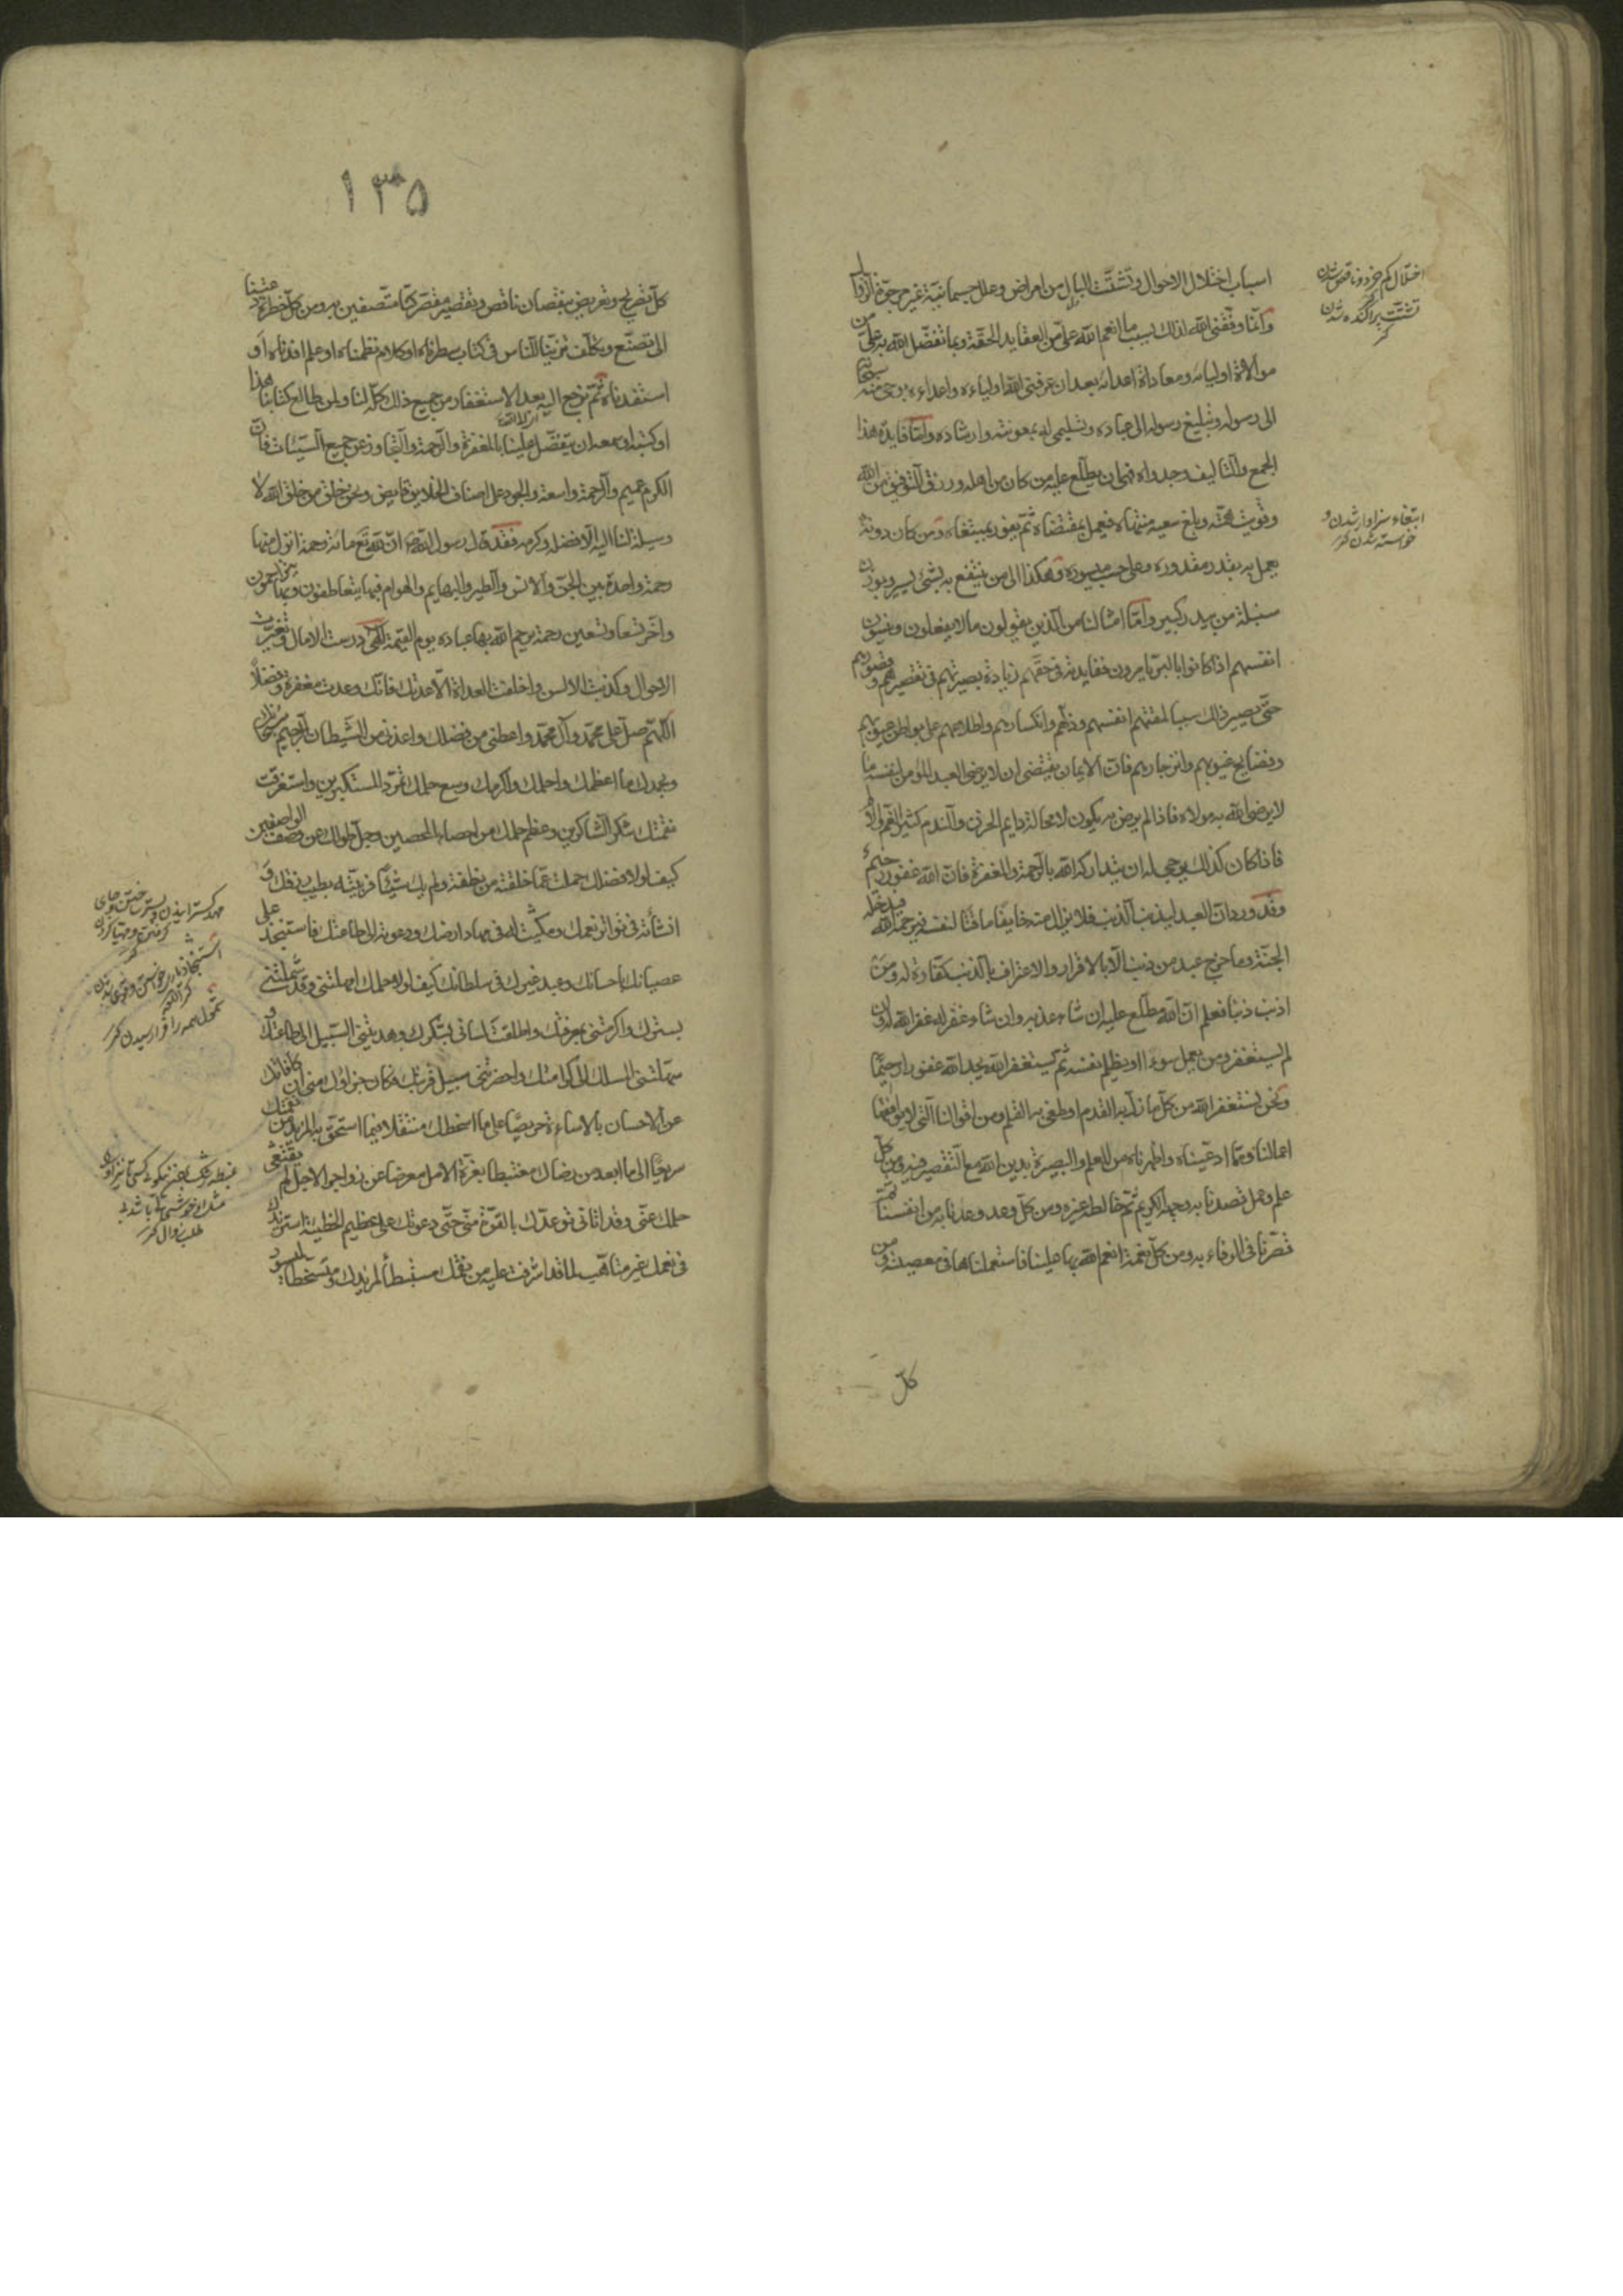 اسباب اختلال الاحوال وتشتت البال من امراض وعلل جسمانية غير مرجوة الزوال
وانما وفقنى الله لذلك بسبب ما انعم الله على من العقايد الحقة وبما تفضل الله به على من
موالاة اوليائه ومعاداة اعدائه بعد ان عرفنى الله اولياءه واعداءه بوحى منه سبحانه
الى رسوله وتبليغ رسوله الى عباده وتسليمى له بمعونته وارشاده واما فايدة هذا
الجمع والتاليف وجدواه فهى ان يطلع عليه من كان من اهله ورزق التوفيق من الله
وقويت همته وبلغ سعيه منتهاه فيعمل بمقتضاه ثم يفوز بمبتغاه ومن كان دونه
يعمل به بقدر مقدوره وعلى حسب ميسوره وهكذا الى من ينتفع به بشئ يسير وبوزن
سنبلة من بيدر كبير واما امثالنا من الذين يقولون ما لا يفعلون وينسون
انفسهم اذا كانوا بالبر يامرون ففايدته فى حقهم زيادة بصيرتهم فى تقصيرهم وقصورهم
حتى يصير ذلك سببا لمقتهم انفسهم وذلهم وانكسارهم واطلاعهم على بواطن عيوبهم
وفضايح غيوبهم وانزجارهم فان الايمان يقتضى ان لا يرضى العبد المؤمن لنفسه ما
لا يرضى الله به مولاه فاذا لم يرض به يكون لا محالة دايم الحزن والندم كثير الغم والالم
فاذا كان كذلك يوجى له ان يتداركه الله بالرحمة والمغفرة فان الله غفور رحيم
وقد ورد ان العبد ليذنب الذنب فلا يزال منه خايفا ماقتا لنفسه فيرحمه الله فيدخله
الجنة وما خرج عبد من ذنب الا بالاقرار والاعتراف بالذنب كفارة له ومن
اذنب ذنبا فعلم ان الله مطلع عليه ان شاء عذبه وان شاء غفر له غفر الله له وان
لم يستغفر ومن يعمل سوءا او يظلم نفسه ثم يستغفر الله يجد الله غفورا رحيما
ونحن نستغفر الله من كل ما زل به القدم او طغى به القلم ومن اقوالنا التى لا يوافقها
اعمالنا ومما ادعيناه واظهرناه من العلم والبصيرة بدين الله مع التقصير فيه ومن كل
علم وعمل قصدنا به وجهه الكريم ثم خالطه غيره ومن كل وعد وعدنا به من انفسنا ثم
قصرنا فى الوفاء به ومن كل نعمة انعم الله بها علينا فاستعملناها فى معصيته ومن
كل
اختلال كم خرد و ناقص شدن
تشتت پراكنده شدن
كنز
ابتغاء سزاوار شدن و
خواسته شدن كنز
۱۳۵
كل تصريح وتعريض بنقصان ناقص وتقصير مقصر كنا متصفين به ومن كل خطرة دعتنا
الى تصنع وتكلف تزينا للناس فى كتاب سطرناه او كلام نظمناه او علم افدناه او
استفدناه ثم نرجع اليه بعد الاستغفار من جميع ذلك كله لنا ولمن طالع كتابنا هذا
او كتبه او سمعه ان يتفضل علينا بالمغفرة والرحمة والتجاوز عن جميع السيئات فان
الكرم عميم والرحمة واسعة والجود على اصناف الخلايق فايض ونحن خلق من خلق الله لا
وسيلة لنا اليه الا فضله وكرمه فقد قال رسول الله ص ان لله تع مائة رحمة انزل منها
رحمة واحدة بين الجن والانس والطير والبهايم والهوام فبها يتعاطفون وبها يتراحمون
واخر تسعا وتسعين رحمة يرحم الله بها عباده يوم القيمة الهى درست الامال وتغيرت
الاحوال وكذبت الالسن واخلفت العداة الا عدتك فانك وعدت مغفرة وفضلا
اللهم صل على محمد وآل محمد واعطنى من فضلك واعذنى من الشيطان الرجيم سبحانك
وبحمدك ما اعظمك واحلمك واكرمك وسع حلمك تمرد المستكبرين واستغرقت
نعمتك شكر الشاكرين وعظم حلمك عن احصاء المحصين وجل طولك عن وصف الواصفين
كيف لولا فضلك حلمت عمن خلقته من نطفة ولم يك شيئا فربيته بطيب رزقك و
انشأته فى تواتر نعمك ومكنت له فى مهاد ارضك ودعوته الى طاعتك فاستنجد على
عصيانك باحسانك وعبد غيرك فى سلطانك كيف لولا حلمك امهلتنى وقد شملتنى
بسترك واكرمتنى بمعرفتك واطلقت لسانى بشكرك وهديتنى السبيل الى طاعتك و
سهلتنى المسلك الى كرامتك واحضرتنى سبيل قربتك فكان جزاؤك منى ان كافاتك
عن الاحسان بالاساءة حريصا على ما اسخطك متنقلا فيما استحق به المزيد من نقمتك
سريعا الى ما ابعد من رضاك مغتبطا بغرة الامل معرضا عن زواجر الاجل لم يقنعنى
حلمك عنى وقد اتانى توعدك باخذ القوة منى حتى دعوتك على عظيم الخطيئة استزيدك
فى نعمك غير متاهب لما قد اشرفت عليه من نقمتك مستبطأ لمزيدك ومتسخطا لميسور
مهد گسترانيدن و بستر ساختن و جاى
گرفتن و مهيا كردن
كنز
استنجاد يارى خواستن و قوى شدن
كنز اللغة